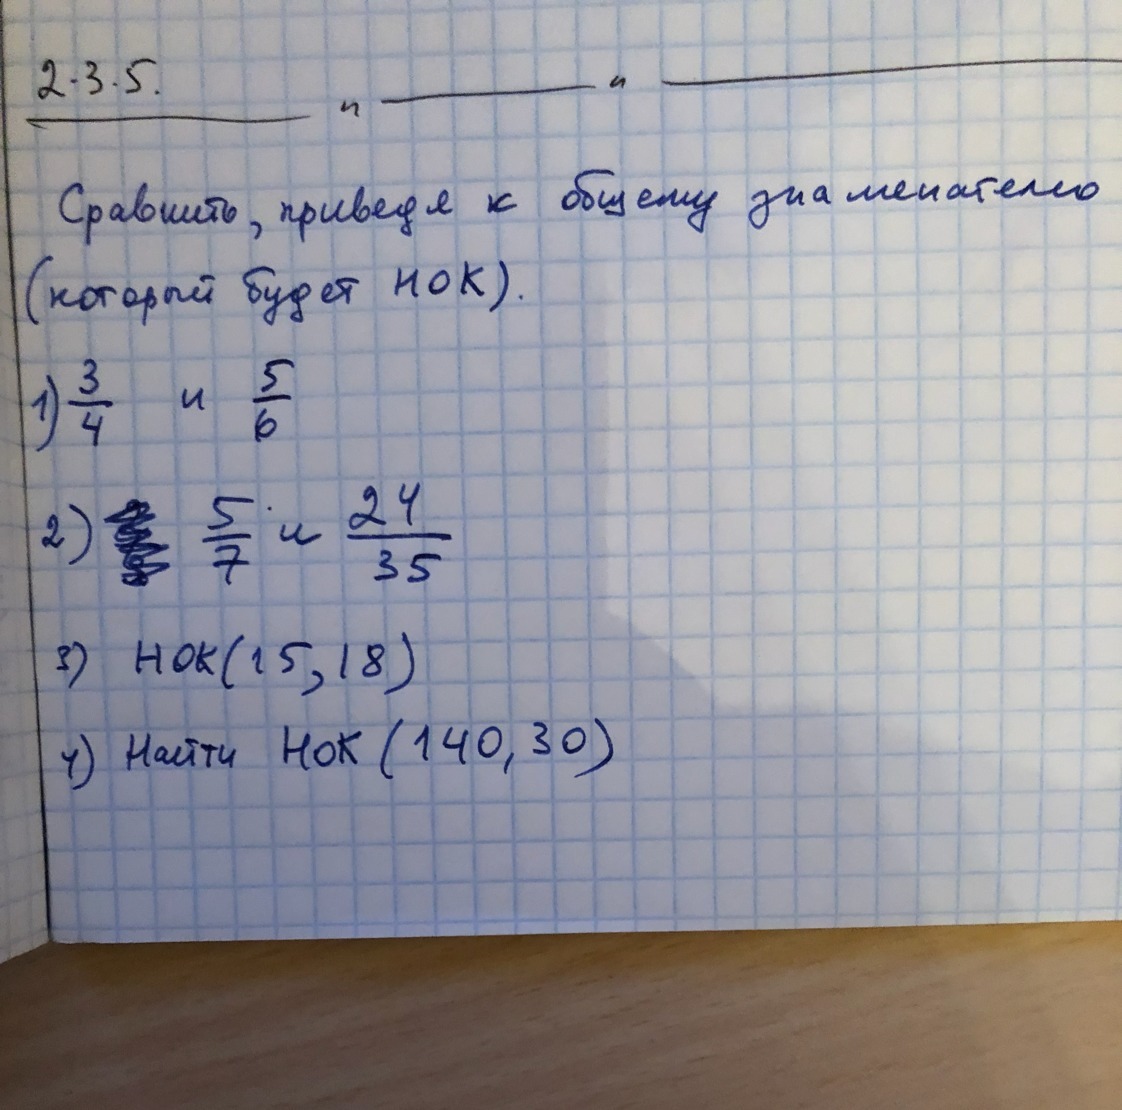 2·3·5. и и
Сравнить, приведя к общему знаменателю
(который будет НОК).
1) 3/4 и 5/6
2) 5/7 и 24/35
3) НОК(15,18)
4) Найти НОК (140,30)